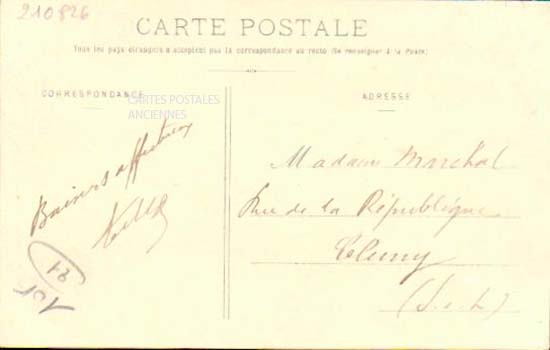 210826
CARTE POSTALE
Tous les pays étrangers n'acceptent pas la correspondance au recto (Se renseigner à la Poste)
CORRESPONDANCE
CARTES POSTALES
ANCIENNES
ADRESSE
Baisers affectueux
Madame
Rue de la République
Cluny
(S. et L.)
101
21